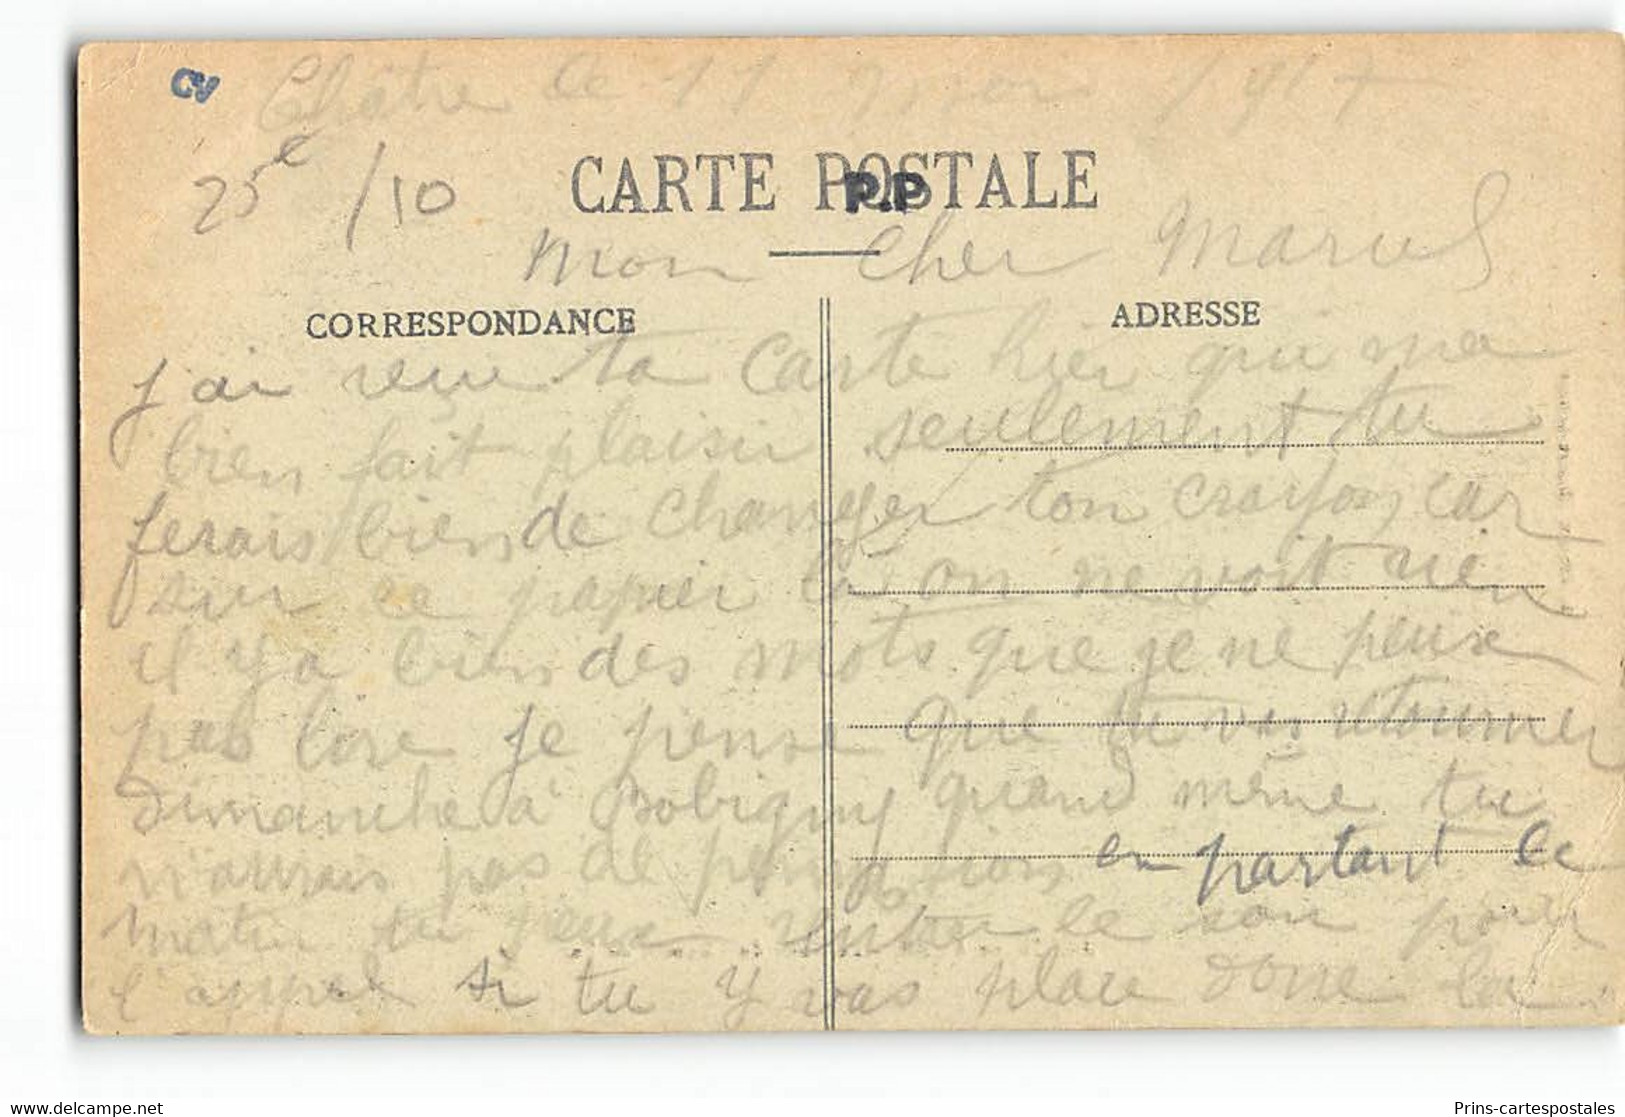 Châtre le 11 mars 1917
cv
25e /10
CARTE POSTALE
P.P
Mon cher Marcel
CORRESPONDANCE
ADRESSE
j'ai reçu ta carte hier qui ma
bien fait plaisir seulement tu
ferais bien de changer ton crayon car
sur ce papier là on ne voit rien
il y a bien des mots que je ne peux
pas lire je pense que tu vas retourner
dimanche à Bobigny quand même tu
n'aurais pas de en partant le
matin tu peux rentrer le soir pour
l'appel si tu y vas place donc la
Prins-cartespostales